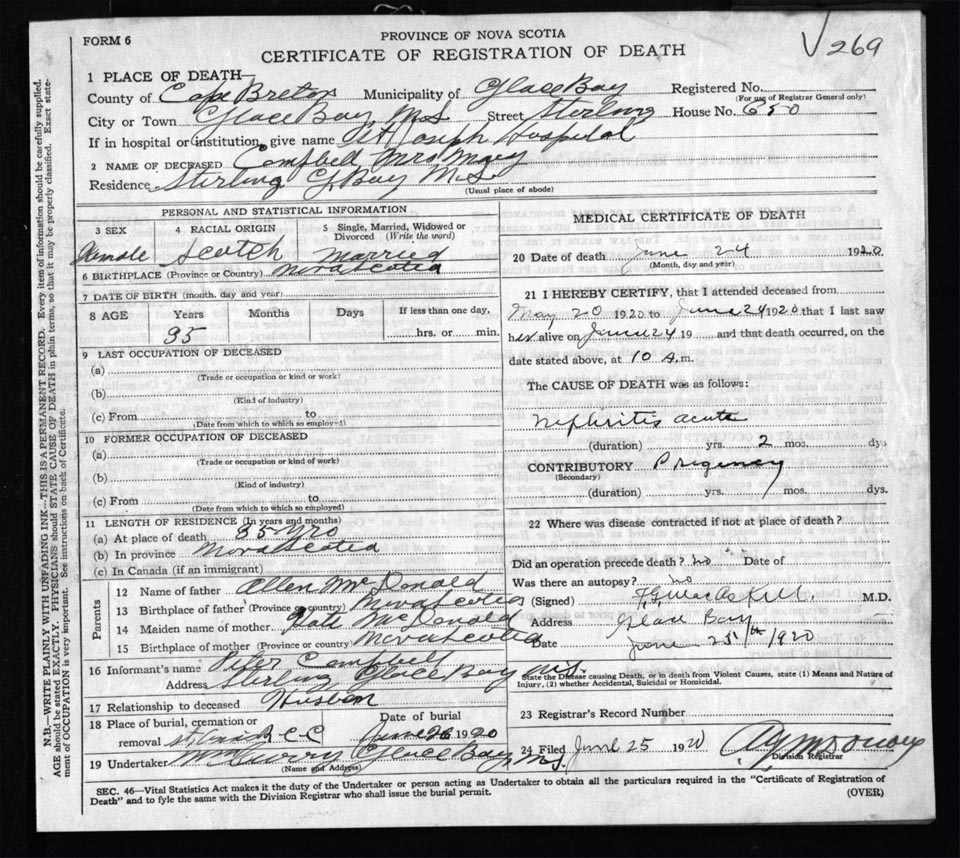 FORM 6
PROVINCE OF NOVA SCOTIA
CERTIFICATE OF REGISTRATION OF DEATH
269
1 PLACE OF DEATH—
County of Cape Breton Municipality of Glace Bay Registered No.
(For use of Registrar General only)
City or Town Glace Bay N.S Street Sterling House No. 650
If in hospital or institution, give name St Joseph Hospital
2 NAME OF DECEASED Campbell Mrs Mary
Residence Sterling G Bay N.S.
(Usual place of abode)
PERSONAL AND STATISTICAL INFORMATION
3 SEX 4 RACIAL ORIGIN 5 Single, Married, Widowed or Divorced (Write the word)
Female Scotch Married
6 BIRTHPLACE (Province or Country) Nova Scotia
7 DATE OF BIRTH (month, day and year)
8 AGE Years Months Days If less than one day,
35 hrs. or min.
9 LAST OCCUPATION OF DECEASED
(a)
(Trade or occupation or kind or work)
(b)
(Kind of industry)
(c) From to
(Date from which to which so employed)
10 FORMER OCCUPATION OF DECEASED
(a)
(Trade or occupation or kind of work)
(b)
(Kind of industry)
(c) From to
(Date from which to which so employed)
11 LENGTH OF RESIDENCE (In years and months)
(a) At place of death 35 yrs
(b) In province Nova Scotia
(c) In Canada (if an immigrant)
Parents
12 Name of father Allen McDonald
13 Birthplace of father (Province or country) Nova Scotia
14 Maiden name of mother Kate McDonald
15 Birthplace of mother (Province or country) Nova Scotia
16 Informant's name Peter Campbell
Address Sterling Glace Bay N.S.
17 Relationship to deceased Husban
18 Place of burial, cremation or removal Date of burial
St R C C June 26 1920
19 Undertaker Glace Bay, N.S.
(Name and Address)
MEDICAL CERTIFICATE OF DEATH
20 Date of death June 24 1920
(Month, day and year)
21 I HEREBY CERTIFY, that I attended deceased from
May 20 1920 to June 24 1920 that I last saw
her alive on June 24 19 and that death occurred, on the
date stated above, at 10 A.m.
The CAUSE OF DEATH was as follows:
Nephritis acute
(duration) yrs. 2 mos. dys
CONTRIBUTORY Pregency
(Secondary)
(duration) yrs. mos. dys.
22 Where was disease contracted if not at place of death?
Did an operation precede death? no Date of
Was there an autopsy? no
(Signed) M.D.
Address Glace Bay
Date June 25th 1920
State the Disease causing Death, or in death from Violent Causes, state (1) Means and Nature of
Injury, (2) whether Accidental, Suicidal or Homicidal.
23 Registrar's Record Number
24 Filed June 25 1920
Division Registrar
SEC. 46—Vital Statistics Act makes it the duty of the Undertaker or person acting as Undertaker to obtain all the particulars required in the "Certificate of Registration of
Death" and to fyle the same with the Division Registrar who shall issue the burial permit. (OVER)
N.B.—WRITE PLAINLY WITH UNFADING INK—THIS IS A PERMANENT RECORD. Every item of information should be carefully supplied.
AGE should be stated EXACTLY. PHYSICIANS should STATE CAUSE OF DEATH in plain terms, so that it may be properly classified. Exact state-
ment of OCCUPATION is very important. See instructions on back of Certificate.